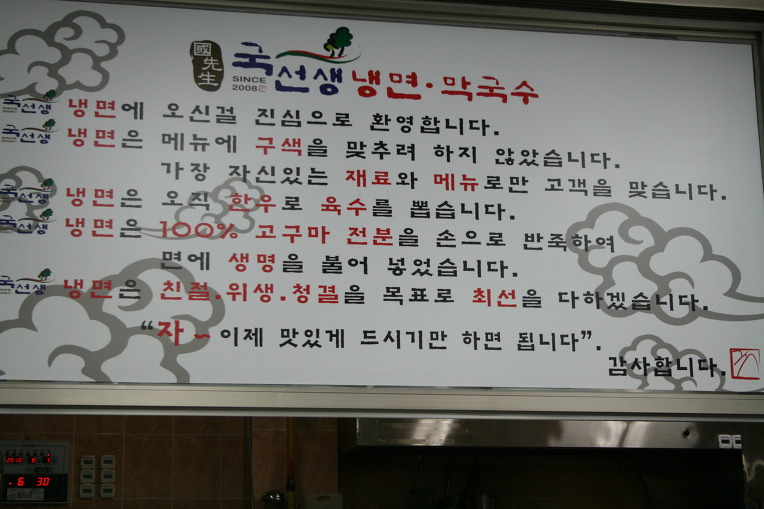 國先生 국선생 냉면·막국수
SINCE 2008
국선생 냉면에 오신걸 진심으로 환영합니다.
국선생 냉면은 메뉴에 구색을 맞추려 하지 않았습니다.
가장 자신있는 재료와 메뉴로만 고객을 맞습니다.
국선생 냉면은 오직 한우로 육수를 뽑습니다.
국선생 냉면은 100% 고구마 전분을 손으로 반죽하여
면에 생명을 불어 넣었습니다.
국선생 냉면은 친절.위생.청결을 목표로 최선을 다하겠습니다.
“자~ 이제 맛있게 드시기만 하면 됩니다”.
감사합니다.
6 30